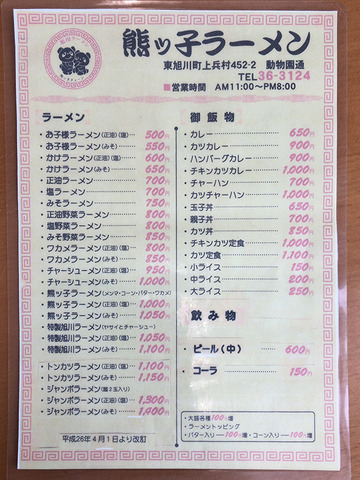 熊ッ子ラーメン
東旭川町上兵村452-2 動物園通
TEL 36-3124
■営業時間 AM11:00〜PM8:00
ラーメン
・お子様ラーメン(正油)(塩) 500円
・お子様ラーメン(みそ) 550円
・かけラーメン(正油)(塩) 600円
・かけラーメン(みそ) 650円
・正油ラーメン 700円
・塩ラーメン 700円
・みそラーメン 750円
・正油野菜ラーメン 800円
・塩野菜ラーメン 800円
・みそ野菜ラーメン 850円
・ワカメラーメン(正油)(塩) 800円
・ワカメラーメン(みそ) 850円
・チャーシューメン(正油)(塩) 950円
・チャーシューメン(みそ) 1,000円
・熊ッ子ラーメン(メンマ・コーン・バター・ワカメ)
・熊ッ子ラーメン(正油)(塩) 1,000円
・熊ッ子ラーメン(みそ) 1,050円
・特製旭川ラーメン(ヤサイとチャーシュー)
・特製旭川ラーメン(正油)(塩) 1,050円
・特製旭川ラーメン(みそ) 1,100円
・トンカツラーメン(正油)(塩) 1,100円
・トンカツラーメン(みそ) 1,150円
・ジャンボラーメン(麺2玉入り)
・ジャンボラーメン(正油)(塩) 1,300円
・ジャンボラーメン(みそ) 1,400円
平成26年4月1日より改訂
御飯物
・カレー 650円
・カツカレー 900円
・ハンバーグカレー 900円
・チキンカツカレー 1,000円
・チャーハン 700円
・カツチャーハン 1,000円
・玉子丼 650円
・親子丼 700円
・カツ丼 850円
・チキンカツ定食 1,000円
・カツ定食 1,100円
・小ライス 150円
・中ライス 200円
・大ライス 250円
飲み物
・ビール(中) 600円
・コーラ 150円
・大盛各種100円増
・ラーメントッピング
・バター入り─100円増・コーン入り─100円増